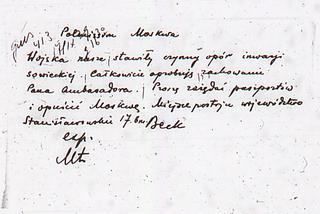 Polmission Moskwa
Wojska nasze stawiły czynny opór inwazji
sowieckiej. Całkowicie aprobuję zachowanie
Pana Ambasadora. Proszę zażądać paszportów
i opuścić Moskwę. Miejsce postoju województwo
Stanisławowskie 17 bm Beck